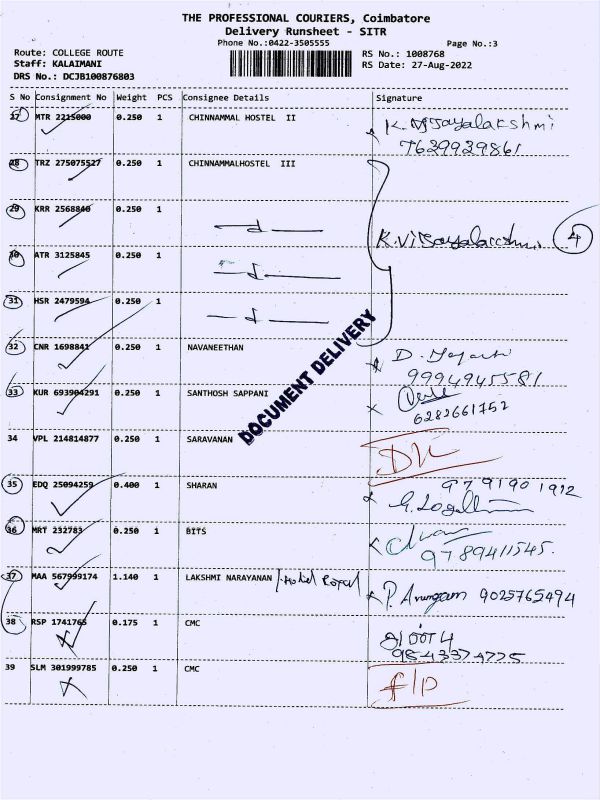 THE PROFESSIONAL COURIERS, Coimbatore
Delivery Runsheet - SITR
Phone No.:0422-3505555 Page No.:3
Route: COLLEGE ROUTE RS No.: 1008768
Staff: KALAIMANI RS Date: 27-Aug-2022
DRS No.: DCJB100876803
S No Consignment No Weight PCS Consignee Details Signature
27 MTR 2215000 0.250 1 CHINNAMMAL HOSTEL II K. Vijayalakshmi
7639939861
28 TRZ 275075527 0.250 1 CHINNAMMALHOSTEL III
29 KRR 2568840 0.250 1
K. Vijayalakshmi 4
30 ATR 3125845 0.250 1
31 HSR 2479594 0.250 1
DOCUMENT DELIVERY
32 CNR 1698841 0.250 1 NAVANEETHAN D.
9994945581
33 KUR 693904291 0.250 1 SANTHOSH SAPPANI
6282661752
34 VPL 214814877 0.250 1 SARAVANAN DL
35 EDQ 25094259 0.400 1 SHARAN 9791901912
36 MRT 232783 0.250 1 BITS
9789411545.
37 MAA 567999174 1.140 1 LAKSHMI NARAYANAN / Hotel Royal P. Arumgam 9025765494
38 RSP 1741765 0.175 1 CMC
9843374775
39 SLM 301999785 0.250 1 CMC f/p